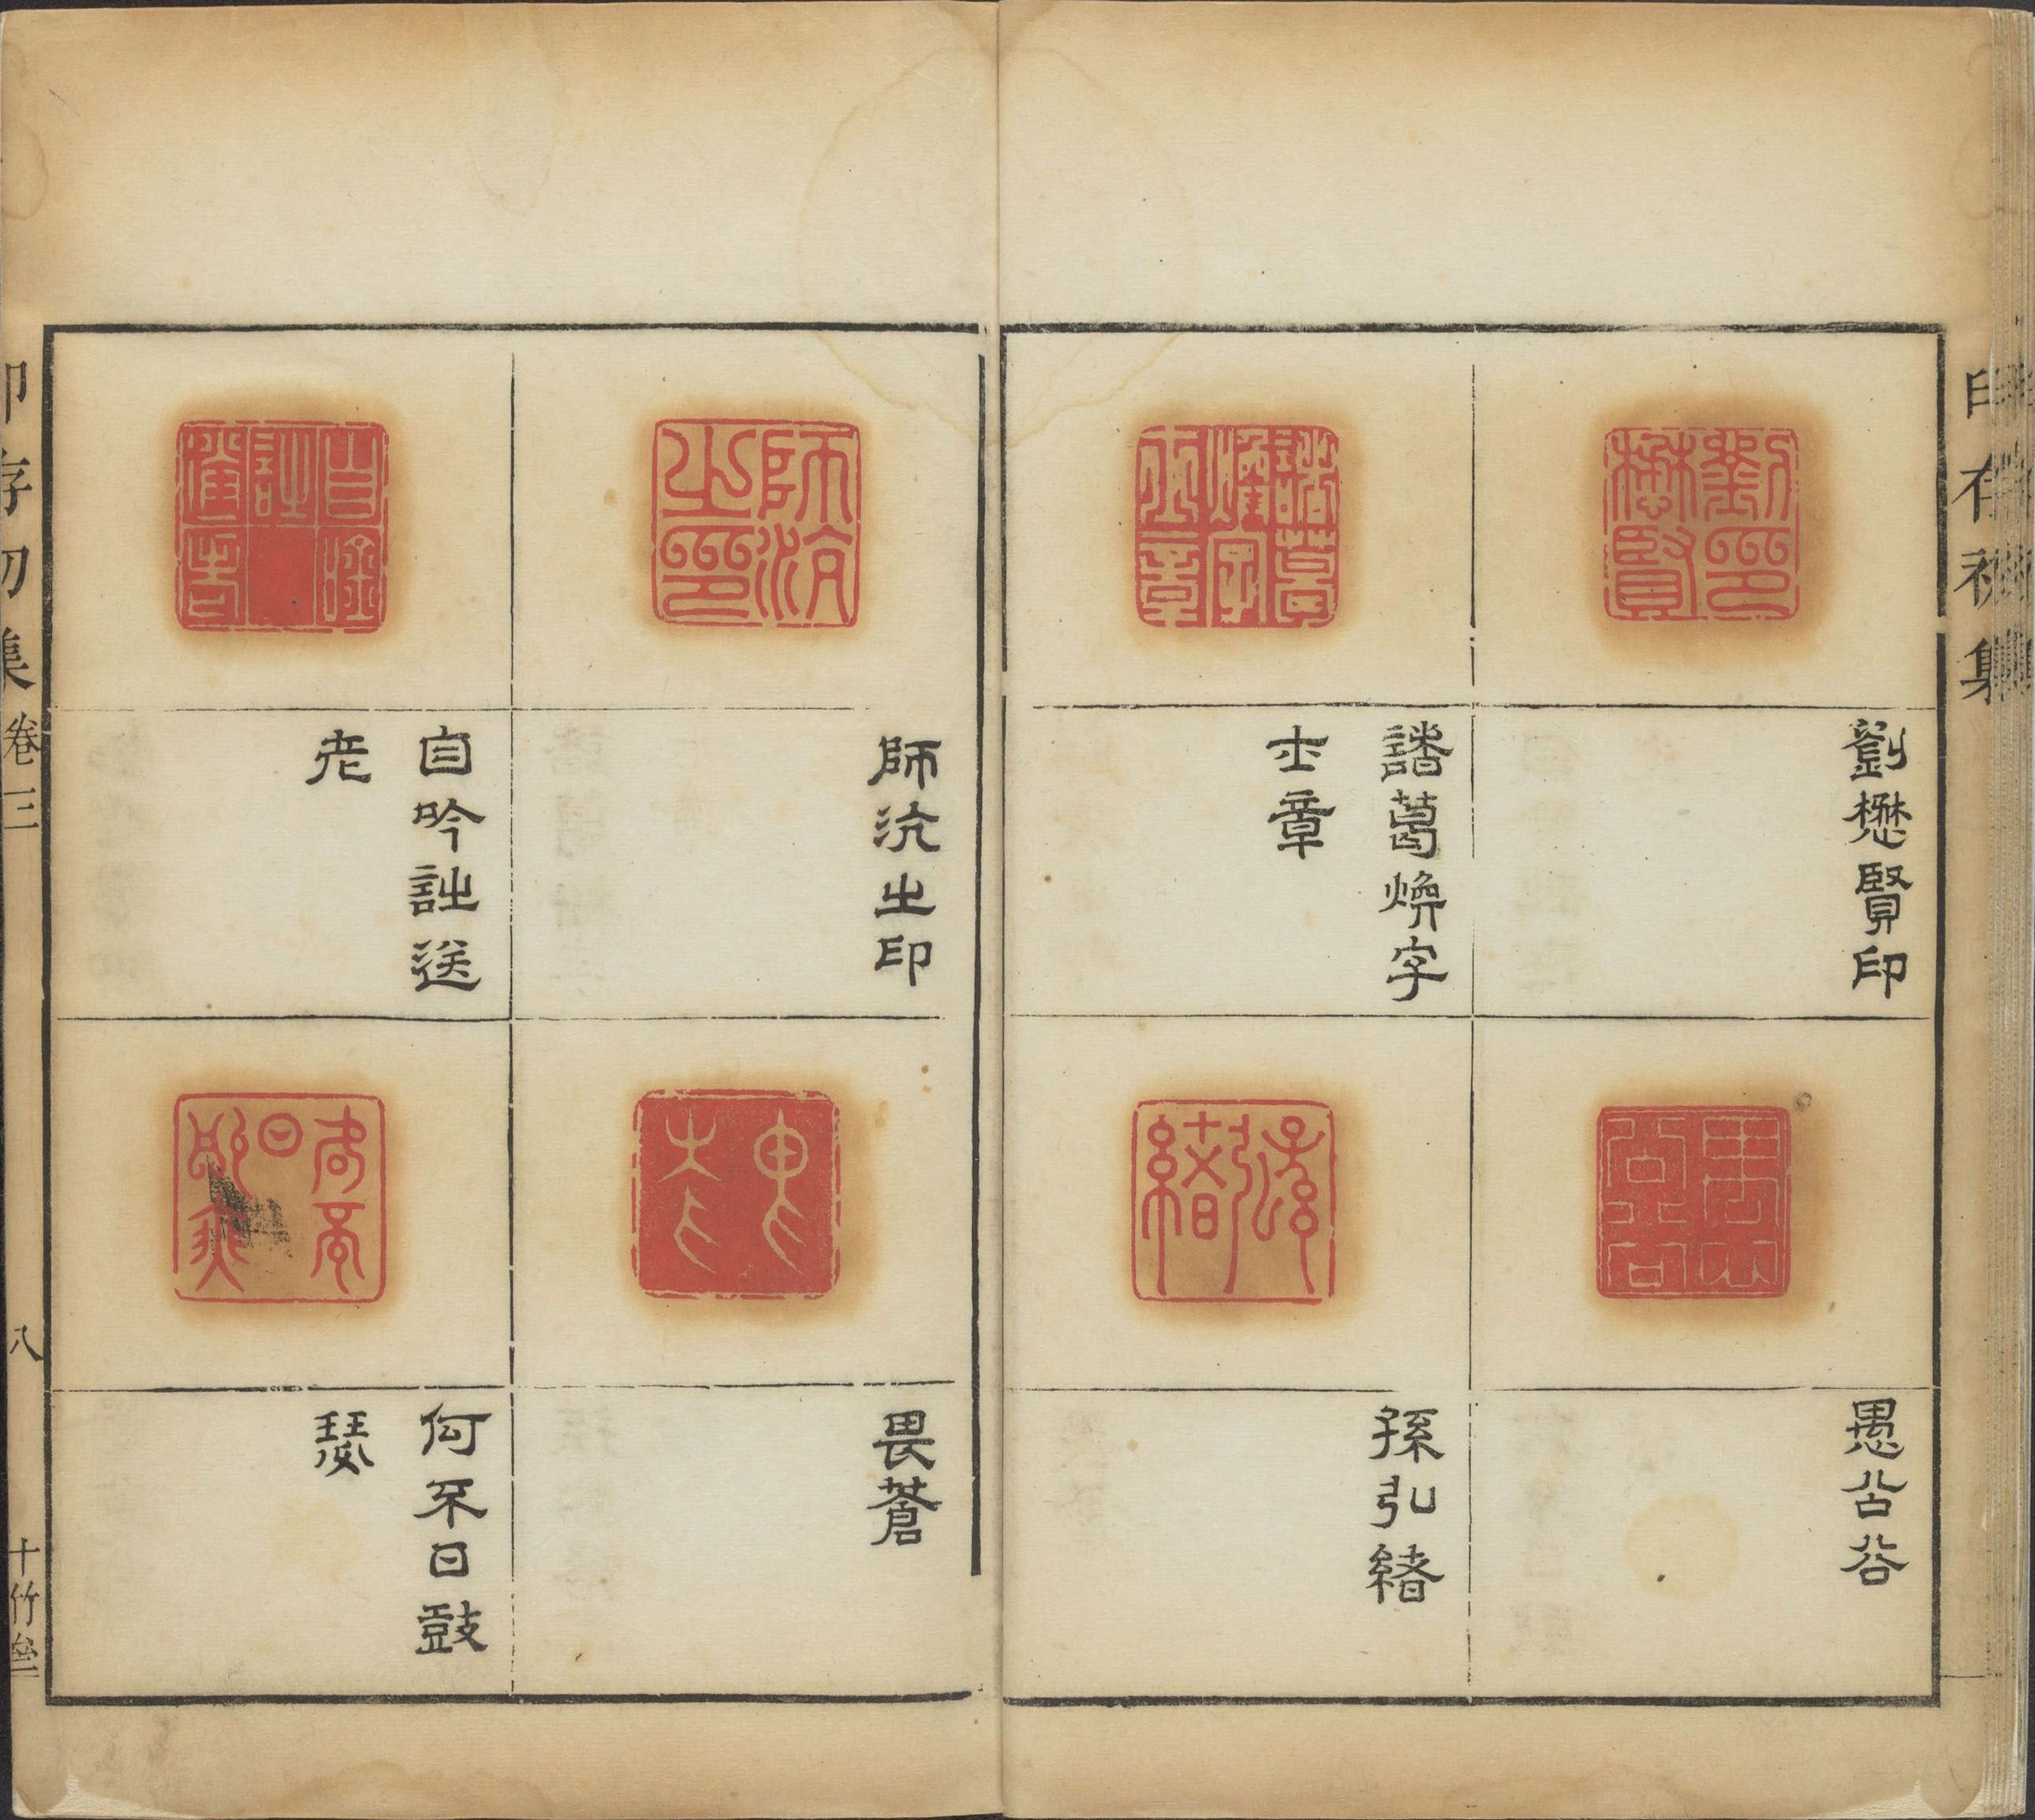 印存初集
劉懋賢印
愚公谷
諸葛煥字
士章
孫弘緒
師沆之印
畏蒼
自吟詩送
老
何不日鼓
瑟
印存初集 卷三 八 十竹齋